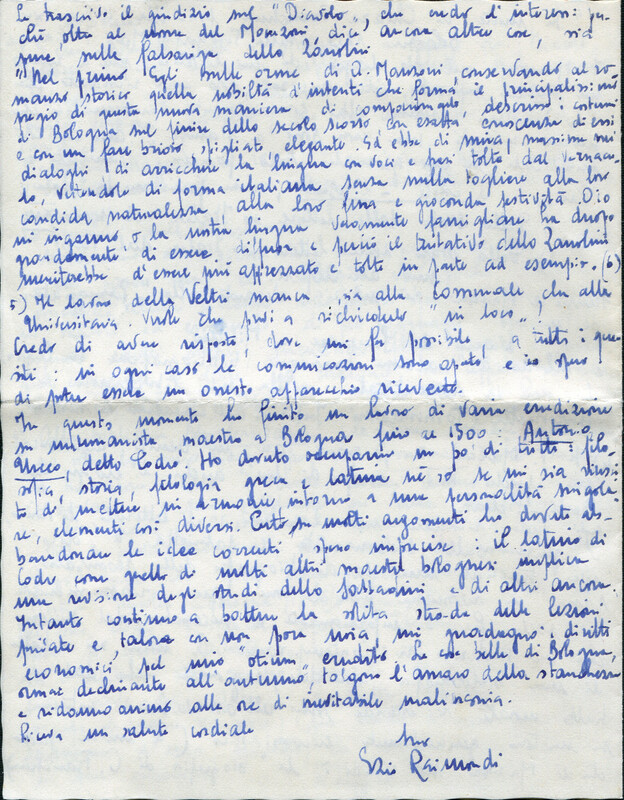 Le trascrivo il giudizio sul "Diavolo", che credo l'interessi: per-
chè, oltre al nome del Manzoni, dice ancora altre cose, sia
pure sulla falsariga dello Zanolini
"Nel primo Egli sulle orme di A. Manzoni, conservando al ro-
manzo storico quella nobiltà d'intenti che forma il principalissimo
pregio di questa nuova maniera di componimento, descrisse i costumi
di Bologna sul finire dello secolo scorso con esatta conoscenza di essi
e con un fare brioso spigliato elegante. Ed ebbe di mira, massime nei
dialoghi di arricchire la lingua con voci e frasi tolte dal vernaco-
lo, vestendole di forma italiana senza nulla togliere alla loro
candida naturalezza, alla loro fina e gioconda festività. O io
mi inganno o la nostra lingua veramente famigliare ha d'uopo
grandemente di essere diffusa e perciò il tentativo dello Zanolini
meriterebbe d'essere più apprezzato e tolto in parte ad esempio. (6)
5) Il lavoro della Veltri manca sia alla comunale, che alla
Universitaria. Vuole che provi a richiederlo "in loco"
Credo di avere risposto, dove mi fu possibile, a tutti i que-
siti: in ogni caso le comunicazioni sono aperte e io spero
di poter essere un onesto apparecchio ricevente.
In questo momento ho finito un lavoro di varia erudizione
su un umanista maestro a Bologna fino al 1500: Antonio
Urceo, detto Codro. Ho dovuto occuparmi un po' di tutto: filo-
sofia, storia, filologia greca e latina nè so se mi sia riusci-
to di mettere in armonia intorno a una personalità singola-
re, elementi così diversi. Certo su molti argomenti ho dovuto ab-
bandonare le idee correnti spesso imprecise: il latino di
Codro come quello di molti altri maestri bolognesi implica
una revisione degli studi dello Sabbadini e di altri ancora.
Intanto continuo a battere la solita strada delle lezioni
private e, talora con non poca noia, mi guadagno i diritti
economici pel mio "otium" erudito. Le cose belle di Bologna,
ormai declinante all'autunno, tolgono l'amaro della stanchezza
e ridonano animo alle ore di inevitabile malinconia.
Riceva un saluto cordiale
Suo
Ezio Raimondi